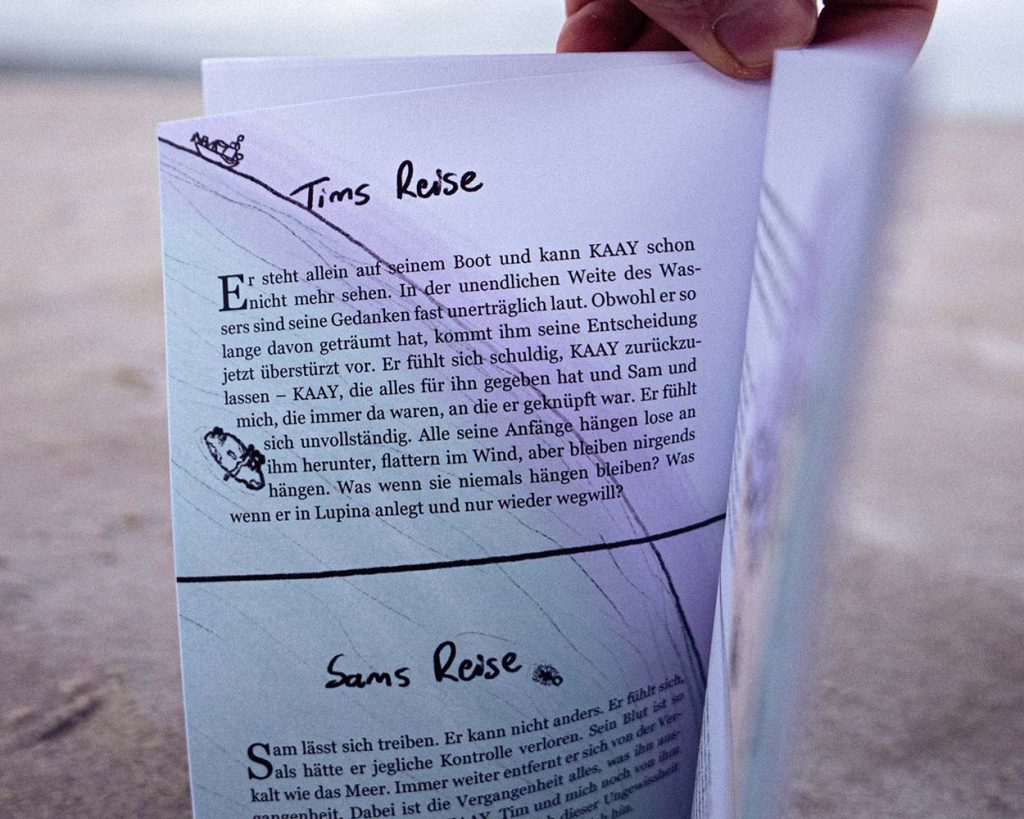 Tims Reise
Er steht allein auf seinem Boot und kann KAAY schon
nicht mehr sehen. In der unendlichen Weite des Was-
sers sind seine Gedanken fast unerträglich laut. Obwohl er so
lange davon geträumt hat, kommt ihm seine Entscheidung
jetzt überstürzt vor. Er fühlt sich schuldig, KAAY zurückzu-
lassen – KAAY, die alles für ihn gegeben hat und Sam und
mich, die immer da waren, an die er geknüpft war. Er fühlt
sich unvollständig. Alle seine Anfänge hängen lose an
ihm herunter, flattern im Wind, aber bleiben nirgends
hängen. Was wenn sie niemals hängen bleiben? Was
wenn er in Lupina anlegt und nur wieder wegwill?
Sams Reise
Sam lässt sich treiben. Er kann nicht anders. Er fühlt sich,
als hätte er jegliche Kontrolle verloren. Sein Blut ist so
kalt wie das Meer. Immer weiter entfernt er sich von der Ver-
gangenheit. Dabei ist die Vergangenheit alles, was ihn aus-
KAAY, Tim und mich noch von ihm
dieser Ungewissheit
bin.